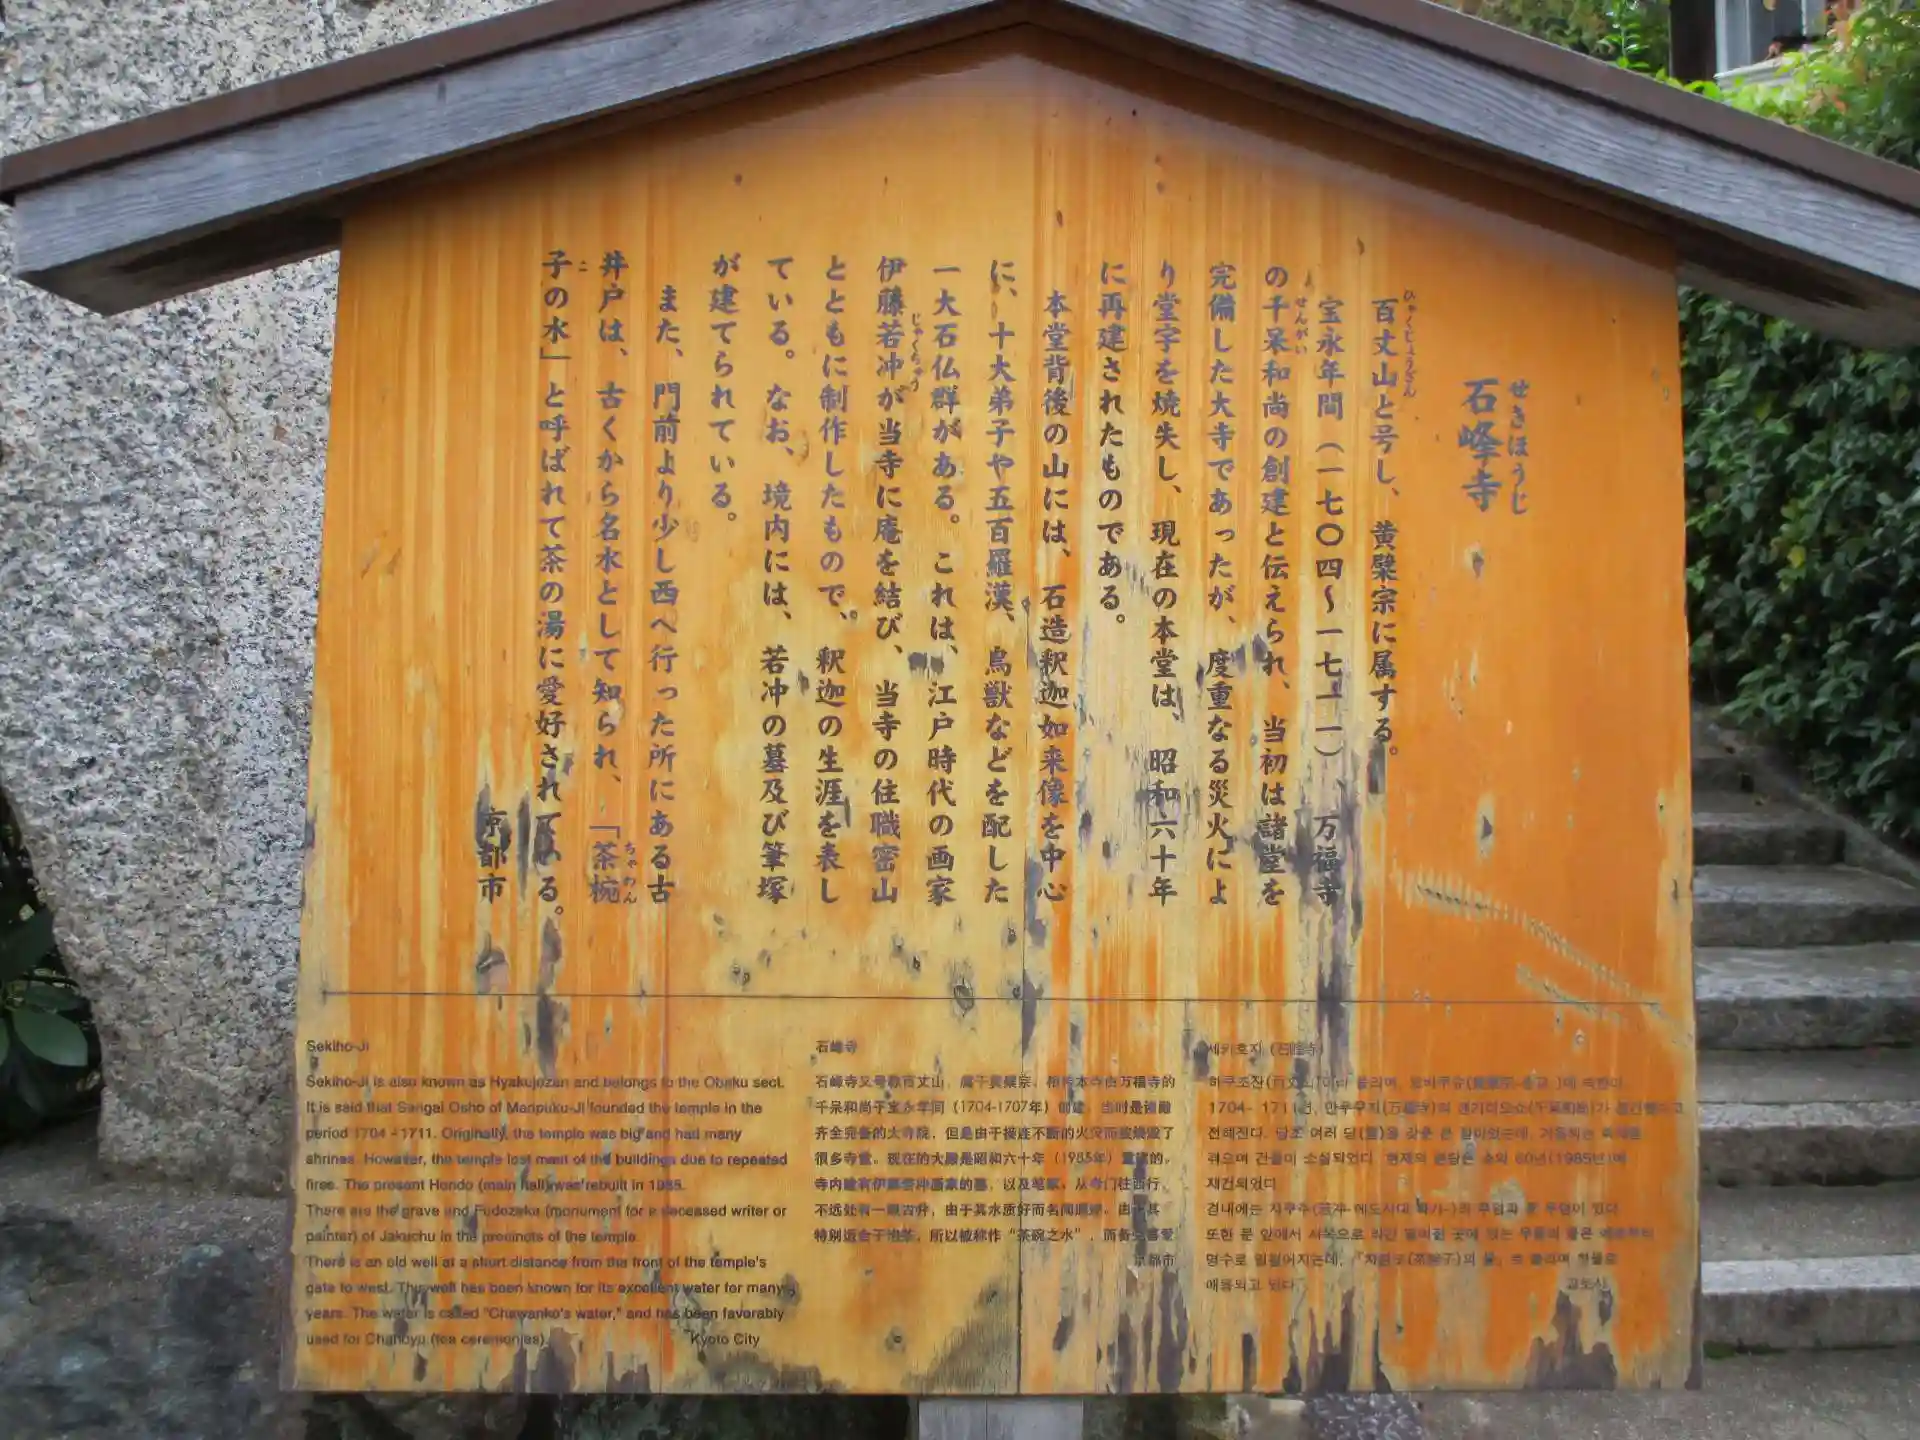 せきほうじ
石峰寺
ひゃくじょうざん
百丈山と号し、黄檗宗に属する。
宝永年間(一七〇四〜一七一一)、万福寺
せんがい
の千呆和尚の創建と伝えられ、当初は諸堂を
完備した大寺であったが、度重なる災火によ
り堂宇を焼失し、現在の本堂は、昭和六十年
に再建されたものである。
本堂背後の山には、石造釈迦如来像を中心
に、十大弟子や五百羅漢、鳥獣などを配した
一大石仏群がある。これは、江戸時代の画家
じゃくちゅう
伊藤若冲が当寺に庵を結び、当寺の住職密山
とともに制作したもので、釈迦の生涯を表し
ている。なお、境内には、若冲の墓及び筆塚
が建てられている。
また、門前より少し西へ行った所にある古
ちゃわん
井戸は、古くから名水として知られ、「茶椀
こ
子の水」と呼ばれて茶の湯に愛好されている。
京都市
Sekiho-Ji
Sekiho-Ji is also known as Hyakujozan and belongs to the Obaku sect.
It is said that Sengai Osho of Manpuku-Ji founded the temple in the
period 1704 - 1711. Originally, the temple was big and had many
shrines. However, the temple lost most of the buildings due to repeated
fires. The present Hondo (main hall) was rebuilt in 1985.
There are the grave and Fudezuka (monument for a deceased writer or
painter) of Jakuchu in the precincts of the temple.
There is an old well at a short distance from the front of the temple's
gate to west. This well has been known for its excellent water for many
years. The water is called "Chawanko's water," and has been favorably
used for Chanoyu (tea ceremonies).
Kyoto City
石峰寺
石峰寺又号称百丈山,属于黄檗宗。相传本寺由万福寺的
千呆和尚于宝永年间(1704-1707年)创建。当时是诸殿
齐全完备的大寺院,但是由于接连不断的火灾而被烧毁了
很多寺堂。现在的大殿是昭和六十年(1985年)重建的。
寺内建有伊藤若冲画家的墓,以及笔冢。从寺门往西行,
不远处有一眼古井,由于其水质好而名闻遐迩。由于其
特别适合于泡茶,所以被称作“茶碗之水”,而备受喜爱
京都市
세키호지 (石峰寺)
1704- 1711년, 만푸쿠지(万福寺)의
전해진다. 당초 여러 당(堂)을 갖춘 큰 절이었는데, 거듭되는 화재를
겪으며 건물이 소실되었다. 현재의 본당은 쇼와 60년(1985년)에
재건되었다
또한 문 앞에서 서쪽으로 약간 떨어진 곳에 있는 우물의 물은 예로부터
애용되고 있다
교토시